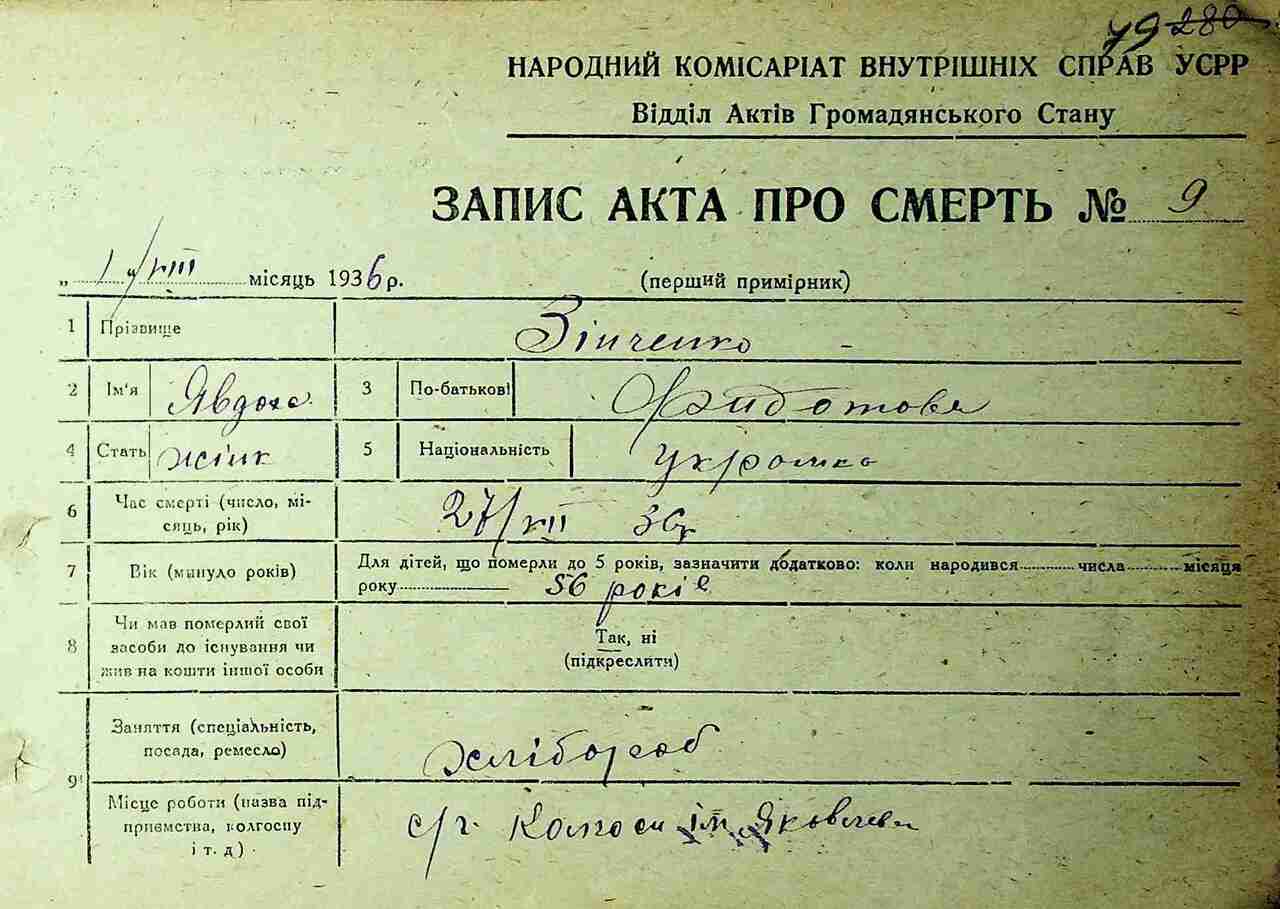 79 280
НАРОДНИЙ КОМІСАРІАТ ВНУТРІШНІХ СПРАВ УСРР
Відділ Актів Громадянського Стану
ЗАПИС АКТА ПРО СМЕРТЬ № 9
„ 1/VIII місяць 1936 р. (перший примірник)
1 Прізвище Зінченко
2 Ім'я Явдоха 3 По-батькові
4 Стать жінк 5 Національність Укр
6 Час смерті (число, мі-
сяць, рік) 27/VII 36р
7 Вік (минуло років) Для дітей, що померли до 5 років, зазначити додатково: коли народився числа місяця
року 56 років
8 Чи мав померлий свої
засоби до існування чи
жив на кошти іншої особи
Так, ні
(підкреслити)
9 Заняття (спеціальність,
посада, ремесло) хлібороб
Місце роботи (назва під-
приємства, колгоспу
і т. д) с/г. ім Яковлева